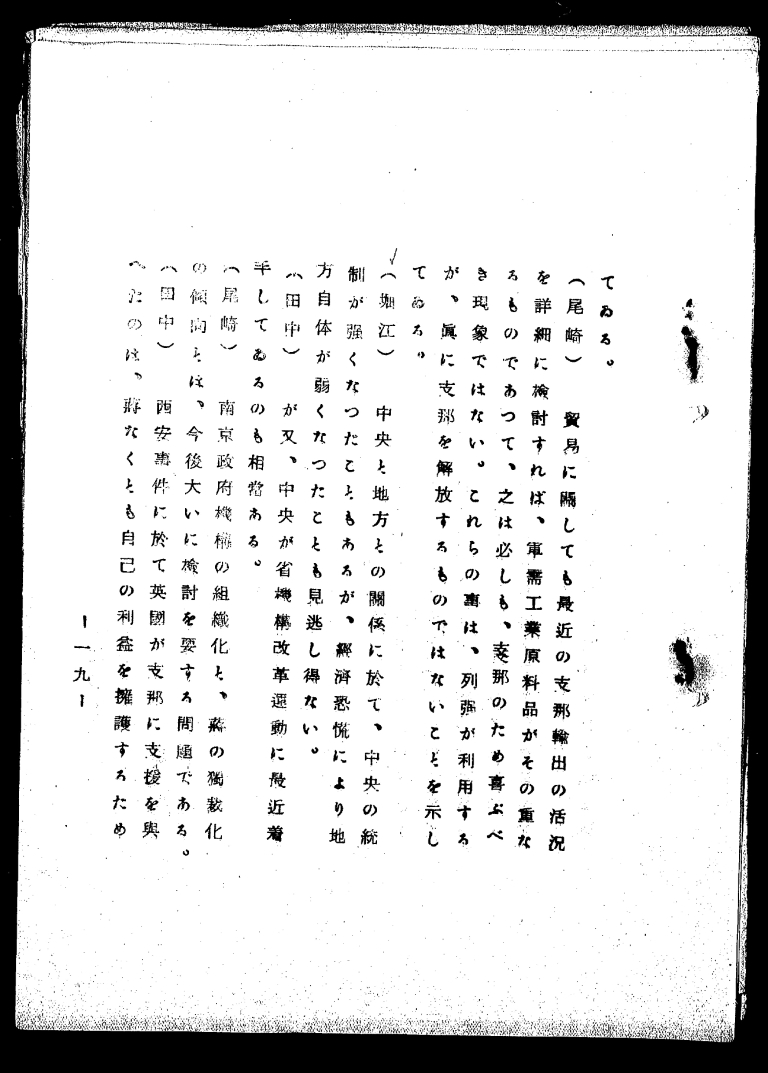 てゐる。
（尾崎）　貿易に關しても最近の支那輸出の活況
を詳細に検討すれば、軍需工業原料品がその重な
るものであつて、之は必しも、支那のため喜ぶべ
き現象ではない。これらの事は、列强が利用する
が、眞に支那を解放するものではないことを示し
てゐる。
（堀江）　中央と地方との關係に於て、中央の統
制が强くなつたこともあるが、經濟恐慌により地
方自体が弱くなつたことも見逃し得ない。
（田中）　が又、中央が省機構改革運動に最近着
手してゐるのも相當ある。
（尾崎）　南京政府機構の組織化と、蔣の獨裁化
の傾向とは、今後大いに検討を要する問題である。
（田中）　西安事件に於て英國が支那に支援を與
へたのは、蔣なくとも自己の利益を擁護するため
ー一九ー